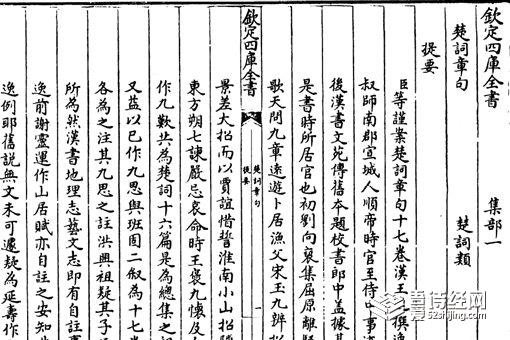 欽定四庫全書 集部一
楚詞章句 楚詞類
提要
臣等謹案楚詞章句十七卷漢王 撰逸
叔師南郡宜城人順帝時官至侍 事
後漢書文苑傳舊本題校書郎中蓋據其
是書時所居官也初劉向裒集屈原離騷
歌天問九章遠遊卜居漁父宋玉九辨招
欽定四庫全書
楚詞章句
提要
一
景差大招而以賈誼惜誓淮南小山招隱
東方朔七諫嚴忌哀命時王褒九懷及
作九歎共為楚詞十六篇是為總集之
又益以己作九思與班固二叙為十七卷
各為之注其九思之註洪興祖疑其子
所為然漢書地理志藝文志即有自註事
逸前謝靈運作山居賦亦自註之安知
逸例耶舊說無文未可遽疑為延壽作
诗经网
52shijing.com